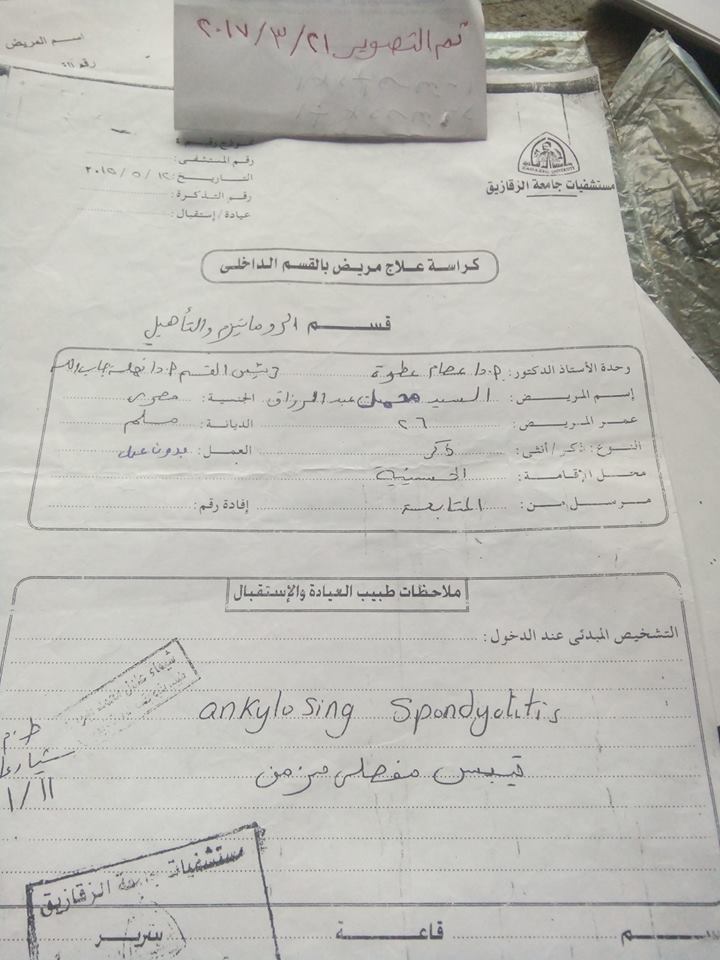 تم التصوير ٢٠١٧/٣/٢١
اسم المريض
ZAGAZIG UNIVERSITY
مستشفيات جامعة الزقازيق
رقم المستشفى:
التاريخ: ٢٠١٥/٥/١٢
رقم التذكرة:
عيادة/إستقبال:
كراسة علاج مريض بالقسم الداخلى
قسم الروماتيزم والتأهيل
وحدة الأستاذ الدكتور: ا.د عصام عطوة رئيس القسم ا.د نهلة جاب الله
إسم المريض: السيد محمد عبد الرزاق الجنسية: مصرى
عمر المريض: ٢٦ الديانة: مسلم
النوع: ذكر/أنثى: ذكر العمل: بدون عمل
محل الإقامة: الحسينية
مرسل من: المتابعة إفادة رقم:
ملاحظات طبيب العيادة والإستقبال
التشخيص المبدئى عند الدخول:
شيماء عادل محمد
ankylosing Spondyolitis
تيبس مفصلى مزمن
مستشفيات جامعة الزقازيق
قاعة سرير